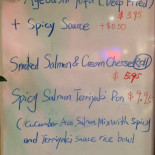 Agedashi Tofu (Deep Fried)
$3.95
+ Spicy Sauce + $0.50
Smoked Salmon & Cream Cheese Roll
$5.95
Spicy Salmon Teriyaki Don $9.95
(Cucumber Avo Salmon Mix with Spicy
and Terriyaki sauce rice bowl